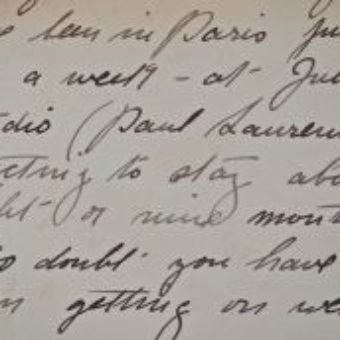 been in Paris ju
a week - at Ju
dio (Paul Lauren
cting to stay abo
ht or nine mont
o doubt you have
n getting on we